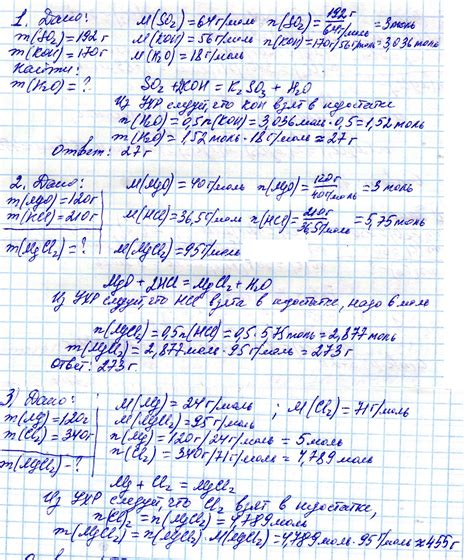 1. Дано: M(SO₂) = 64 г/моль n(SO₂) = 192 г / 64 г/моль = 3 моль
m(SO₂) = 192 г M(KOH) = 56 г/моль n(KOH) = 170 г/56 г/моль = 3,036 моль
m(KOH) = 170 г M(H₂O) = 18 г/моль
Найти:
m(H₂O) = ? SO₂ + 2KOH = K₂SO₃ + H₂O
Из УХР следует, что KOH взят в недостатке
n(H₂O) = 0,5 n(KOH) = 3,036 моль · 0,5 = 1,52 моль
m(H₂O) = 1,52 моль · 18 г/моль ≈ 27 г
Ответ: 27 г
2. Дано: M(MgO) = 40 г/моль n(MgO) = 120 г / 40 г/моль = 3 моль
m(MgO) = 120 г
m(HCl) = 210 г M(HCl) = 36,5 г/моль n(HCl) = 210 г / 36,5 г/моль = 5,75 моль
m(MgCl₂) = ? M(MgCl₂) = 95 г/моль
MgO + 2HCl = MgCl₂ + H₂O
Из УХР следует, что HCl взята в недостатке, надо 6 моль
n(MgCl₂) = 0,5 n(HCl) = 0,5 · 5,75 моль = 2,877 моль
m(MgCl₂) = 2,877 моль · 95 г/моль = 273 г
Ответ: 273 г
3) Дано: M(Mg) = 24 г/моль ; M(Cl₂) = 71 г/моль
m(Mg) = 120 г M(MgCl₂) = 95 г/моль
m(Cl₂) = 340 г n(Mg) = 120 г/24 г/моль = 5 моль
n(Cl₂) = 340 г/71 г/моль = 4,789 моль
m(MgCl₂) - ?
Mg + Cl₂ = MgCl₂
Из УХР следует, что Cl₂ взят в недостатке,
n(Cl₂) = n(MgCl₂) = 4,789 моль
m(MgCl₂) = n(MgCl₂) · M(MgCl₂) = 4,789 моль · 95 г/моль ≈ 455 г